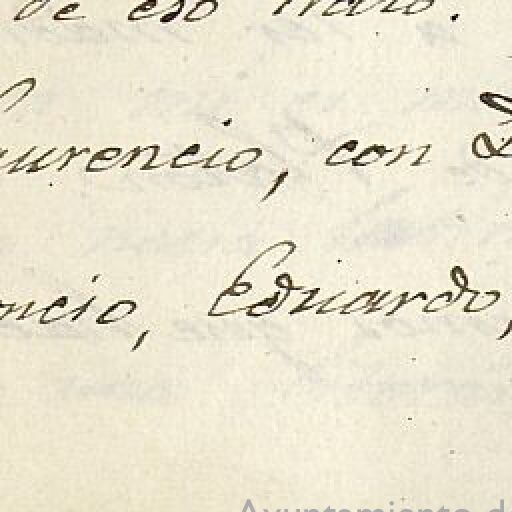 de eso trato.
aurencio, con D
encio, Eduardo,
Ayuntamiento d